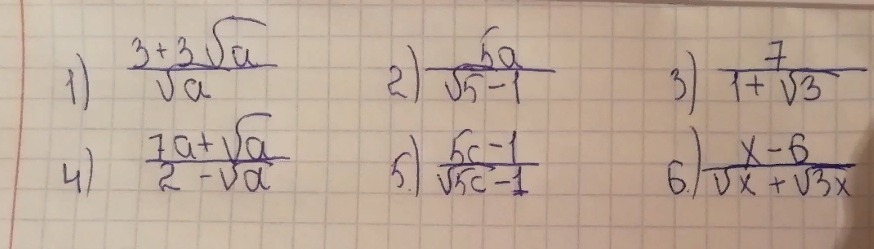 1) (3+3√a)/√a 2) 5a/(√5-1) 3) 7/(1+√3)
4) (7a+√a)/(2-√a) 5.) (5c-1)/(√5c-1) 6.) (x-6)/(√x+√3x)